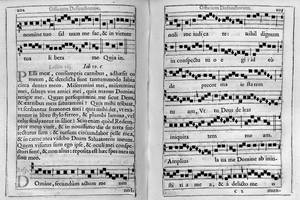 Officium Defunctorum.
nomine tuo sal uum me fac, & in virtute
tua li bera me Quia in.
Iob 19. c
Pelli meæ, consumptis carnibus, adhæsit os
meum, & derelicta sunt tantummodo labia
circa dentes meos. Miseremini mei, miseremini
mei, saltem vos amici mei, quia manus Domini
tetigit me. Quare persequimini me sicut Deus,
& carnibus meis saturamini? Quis mihi tribuat,
vt scribantur sermones mei? Quis mihi det, vt
exarentur in libro stylo ferreo, & plumbi lamina, vel
celte sculpantur in silice? Scio enim quod
Redemptor meus viuit, & in nouissimo die de terra surre-
cturus sum: & rursum circumdabor pelle mea,
& in carne mea videbo Deum meum. Quem
visurus sum ego ipse, & oculi mei conspecturi
sunt, & non alius: reposita est hæc spes mea in
sinu meo.
Domine, secundùm actum me um
noli
Officium Defunctorum.
noli me iudica re: nihil dignum
in conspectu tu o e gi id e o
de precor ma ie sta tem
tu am, Vt tu Deus de leas
iniquita tem me am.
Amplius la ua me Domine ab iniu-
sti ti a me a, & a delicto me o